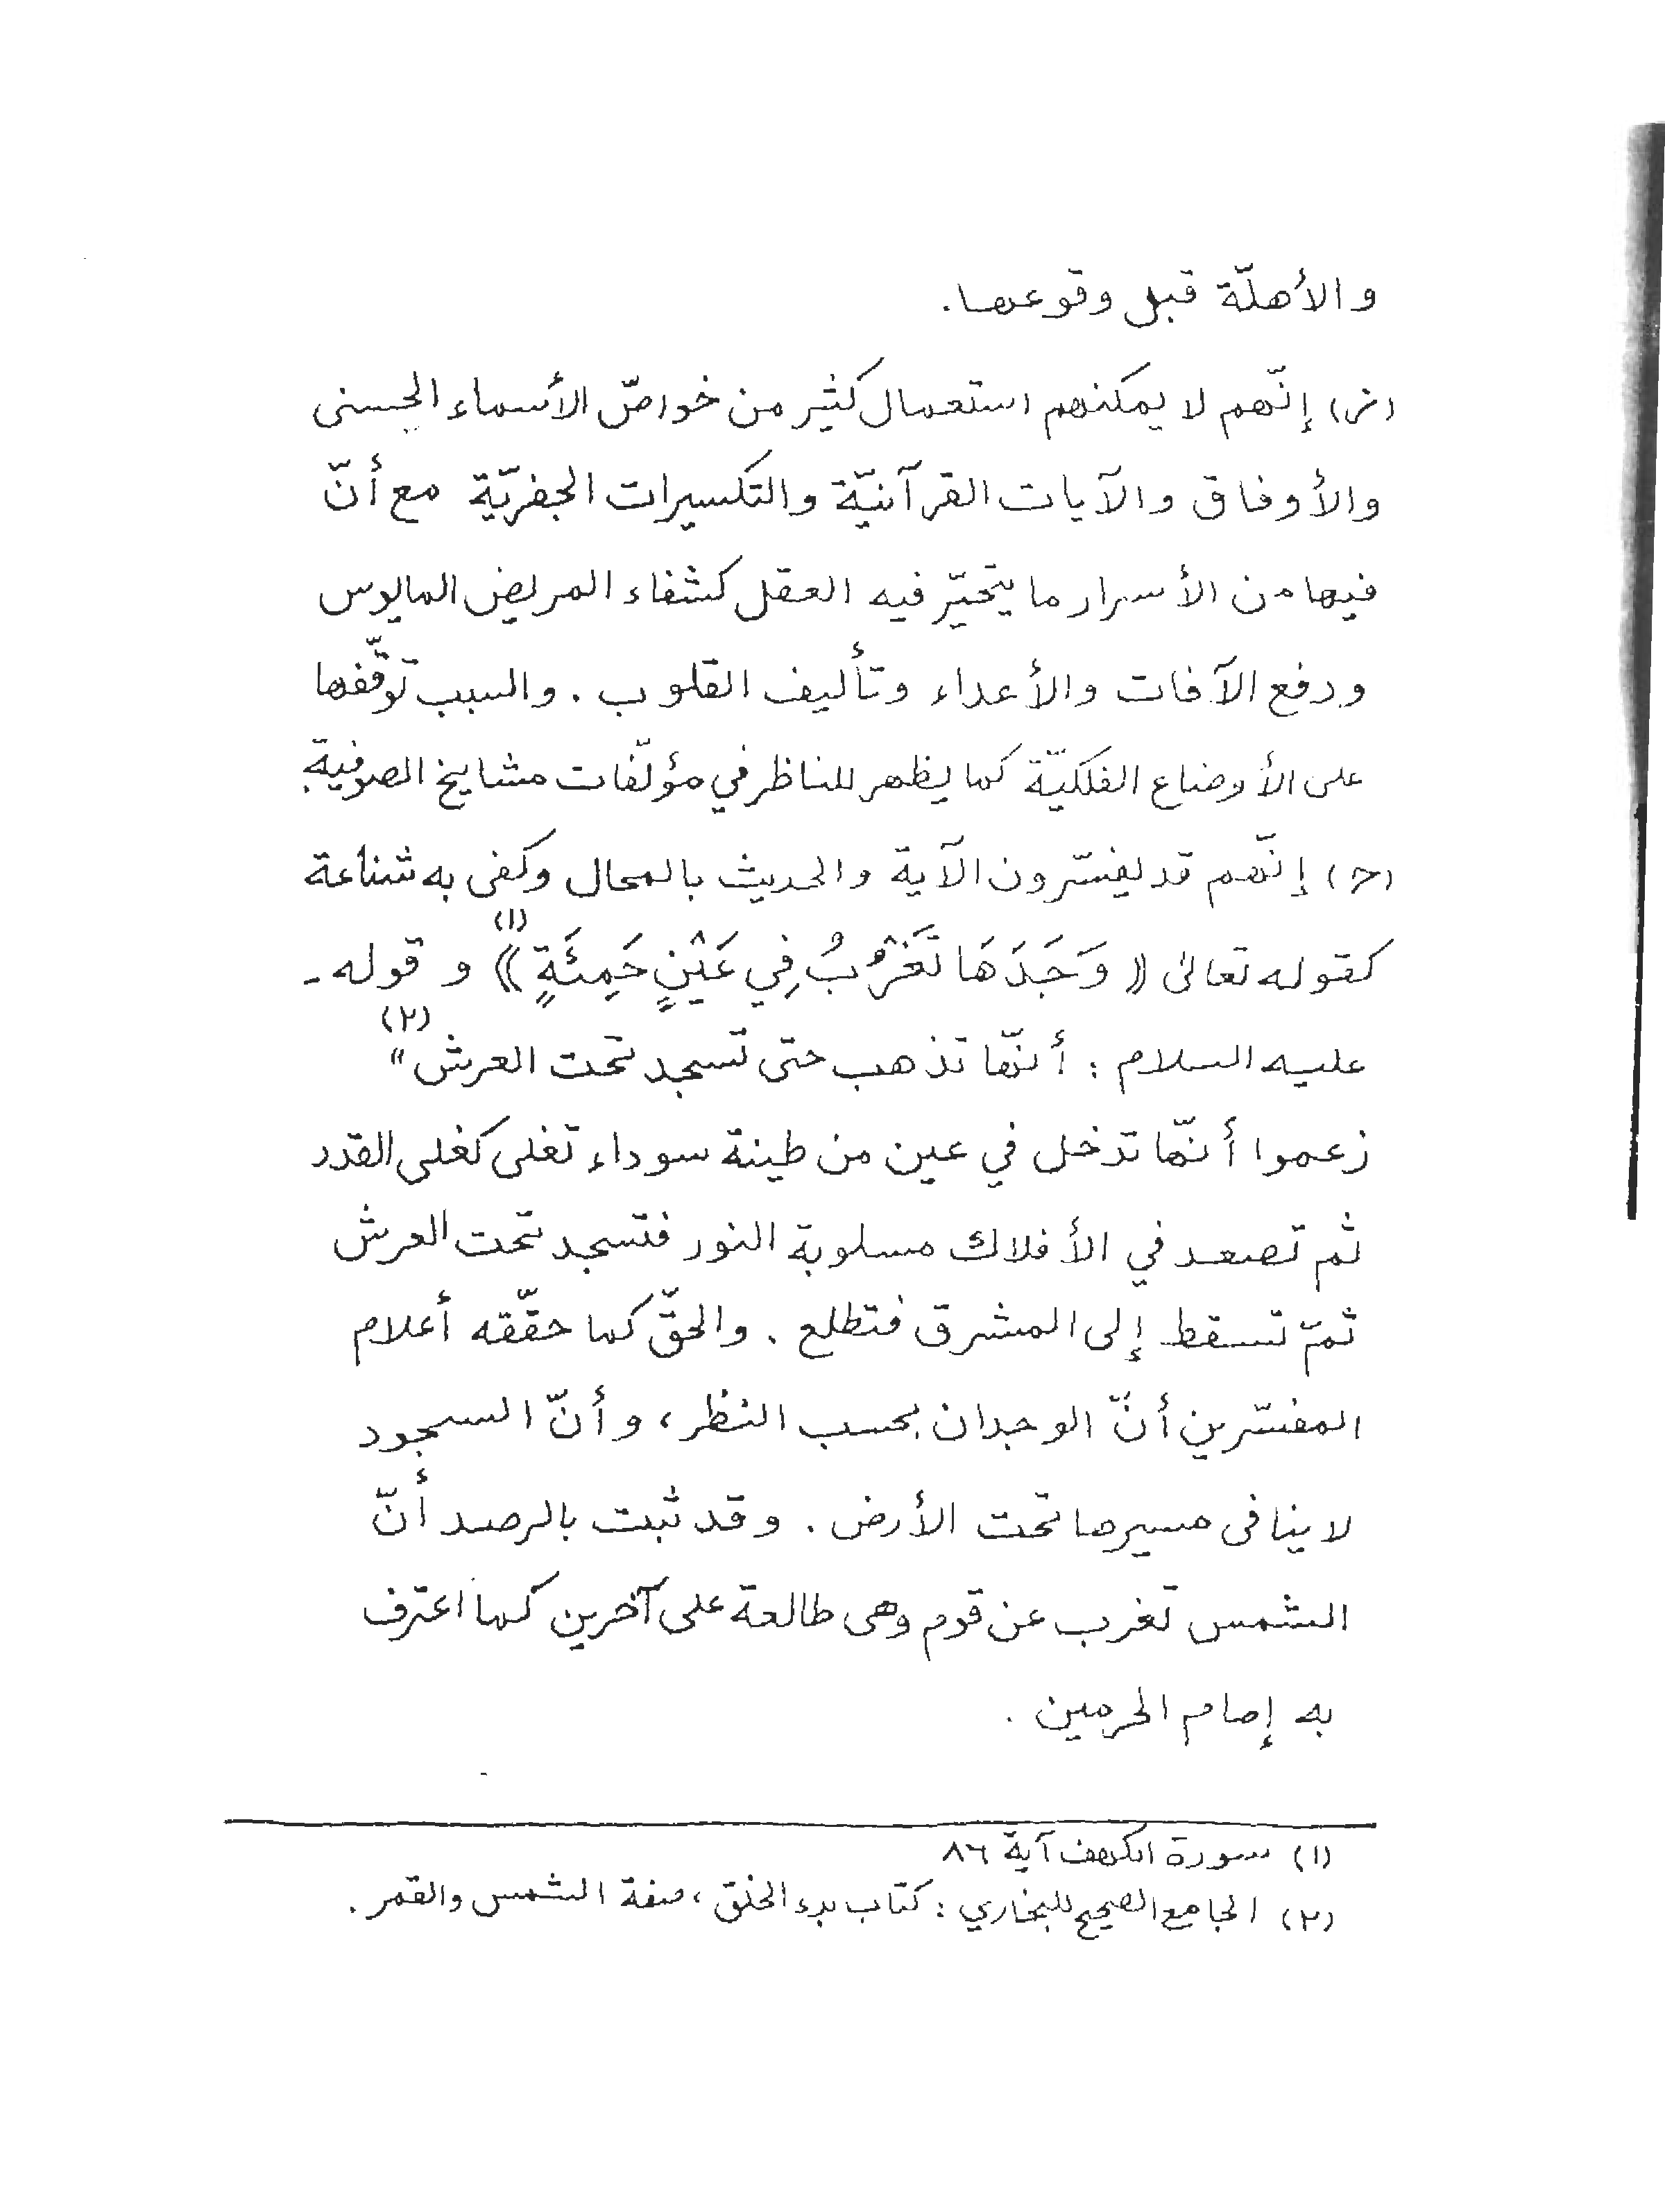 والأهلّة قبل وقوعها.
(ز) إنّهم لا يمكنهم استعمال كثير من خواصّ الأسماء الحسنى
والأوفاق والآيات القرآنيّة والتكسيرات الجفريّة مع أنّ
فيها من الأسرار ما يتحيّر فيه العقل كشفاء المريض المايوس
ودفع الآفات والأعداء وتأليف القلوب. والسبب توقّفها
على الأوضاع الفلكيّة كما يظهر للناظر في مؤلّفات مشايخ الصوفية.
(ح) إنّهم قد يفسّرون الآية والحديث بالمحال وكفى به شناعة
كقوله تعالى ((وَجَدَهَا تَغْرُبُ فِي عَيْنٍ حَمِئَةٍ))(١) وقوله -
عليه السلام : أنّها تذهب حتى تسجد تحت العرش"(٢)
زعموا أنّها تدخل في عين من طينة سوداء تغلى كغلى القدر
ثم تصعد في الأفلاك مسلوبة النور فتسجد تحت العرش
ثمّ تسقط إلى المشرق فتطلع. والحقّ كما حقّقه أعلام
المفسّرين أنّ الوجدان بحسب النظر، وأنّ السجود
لا ينافى مسيرها تحت الأرض. وقد ثبت بالرصد أنّ
الشمس تغرب عن قوم وهى طالعة على آخرين كما اعترف
به إمام الحرمين.
(١) سورة الكهف آية ٨٦
(٢) الجامع الصحيح للبخاري : كتاب بدء الخلق، صفة الشمس والقمر.